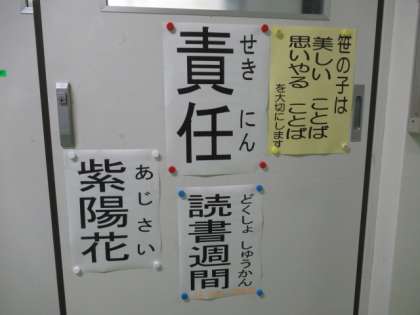 笹の子は
美しい ことば
思いやる ことば
を大切にします
責任
せき にん
紫陽花
あじさい
読書週間
どくしょ しゅうかん